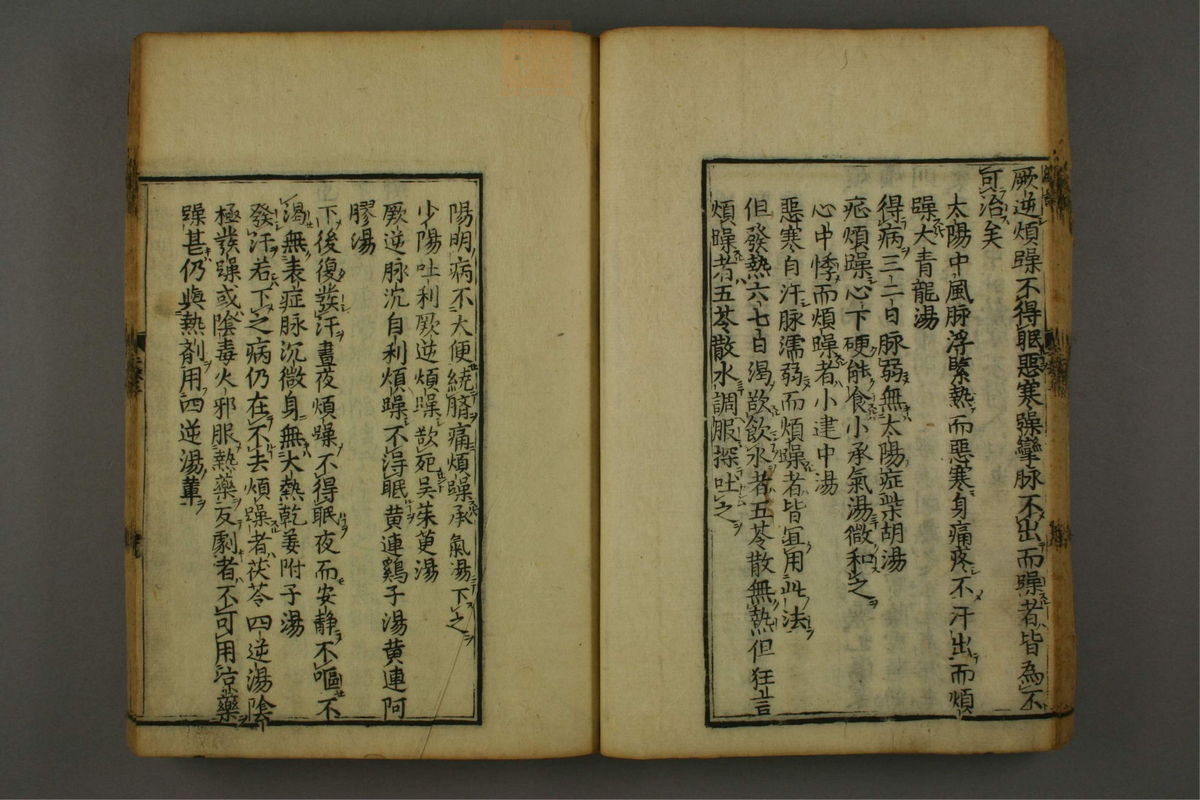 厥逆煩躁不得眠惡寒躁攣脉不出而躁者皆為不
可治矣
太陽中風脉浮緊熱而惡寒身痛疼不汗出而煩
躁大青龍湯
得病三二日脉弱無太陽症柴胡湯
疪煩躁心下硬能食小承氣湯微和之
心中悸而煩躁者小建中湯
惡寒自汗脉濡弱而煩躁者皆宜用此法
但發熱六七日渴欲飲水者五苓散無熱但狂言
煩躁者五苓散水調服探吐之
陽明病不大便繞臍痛煩躁承氣湯下之
少陽吐利厥逆煩躁欲死吳茱萸湯
厥逆脉沉自利煩躁不得眠黃連鷄子湯黃連阿
膠湯
下後復發汗晝夜煩躁不得眠夜而安靜不嘔不
渴無表症脉沉微身無大熱乾姜附子湯
發汗若下之病仍在不去煩躁者茯苓四逆湯陰
極發躁或陰毒火邪服熱藥反劇者不可用沽藥
躁甚仍與熱剤用四逆湯軰